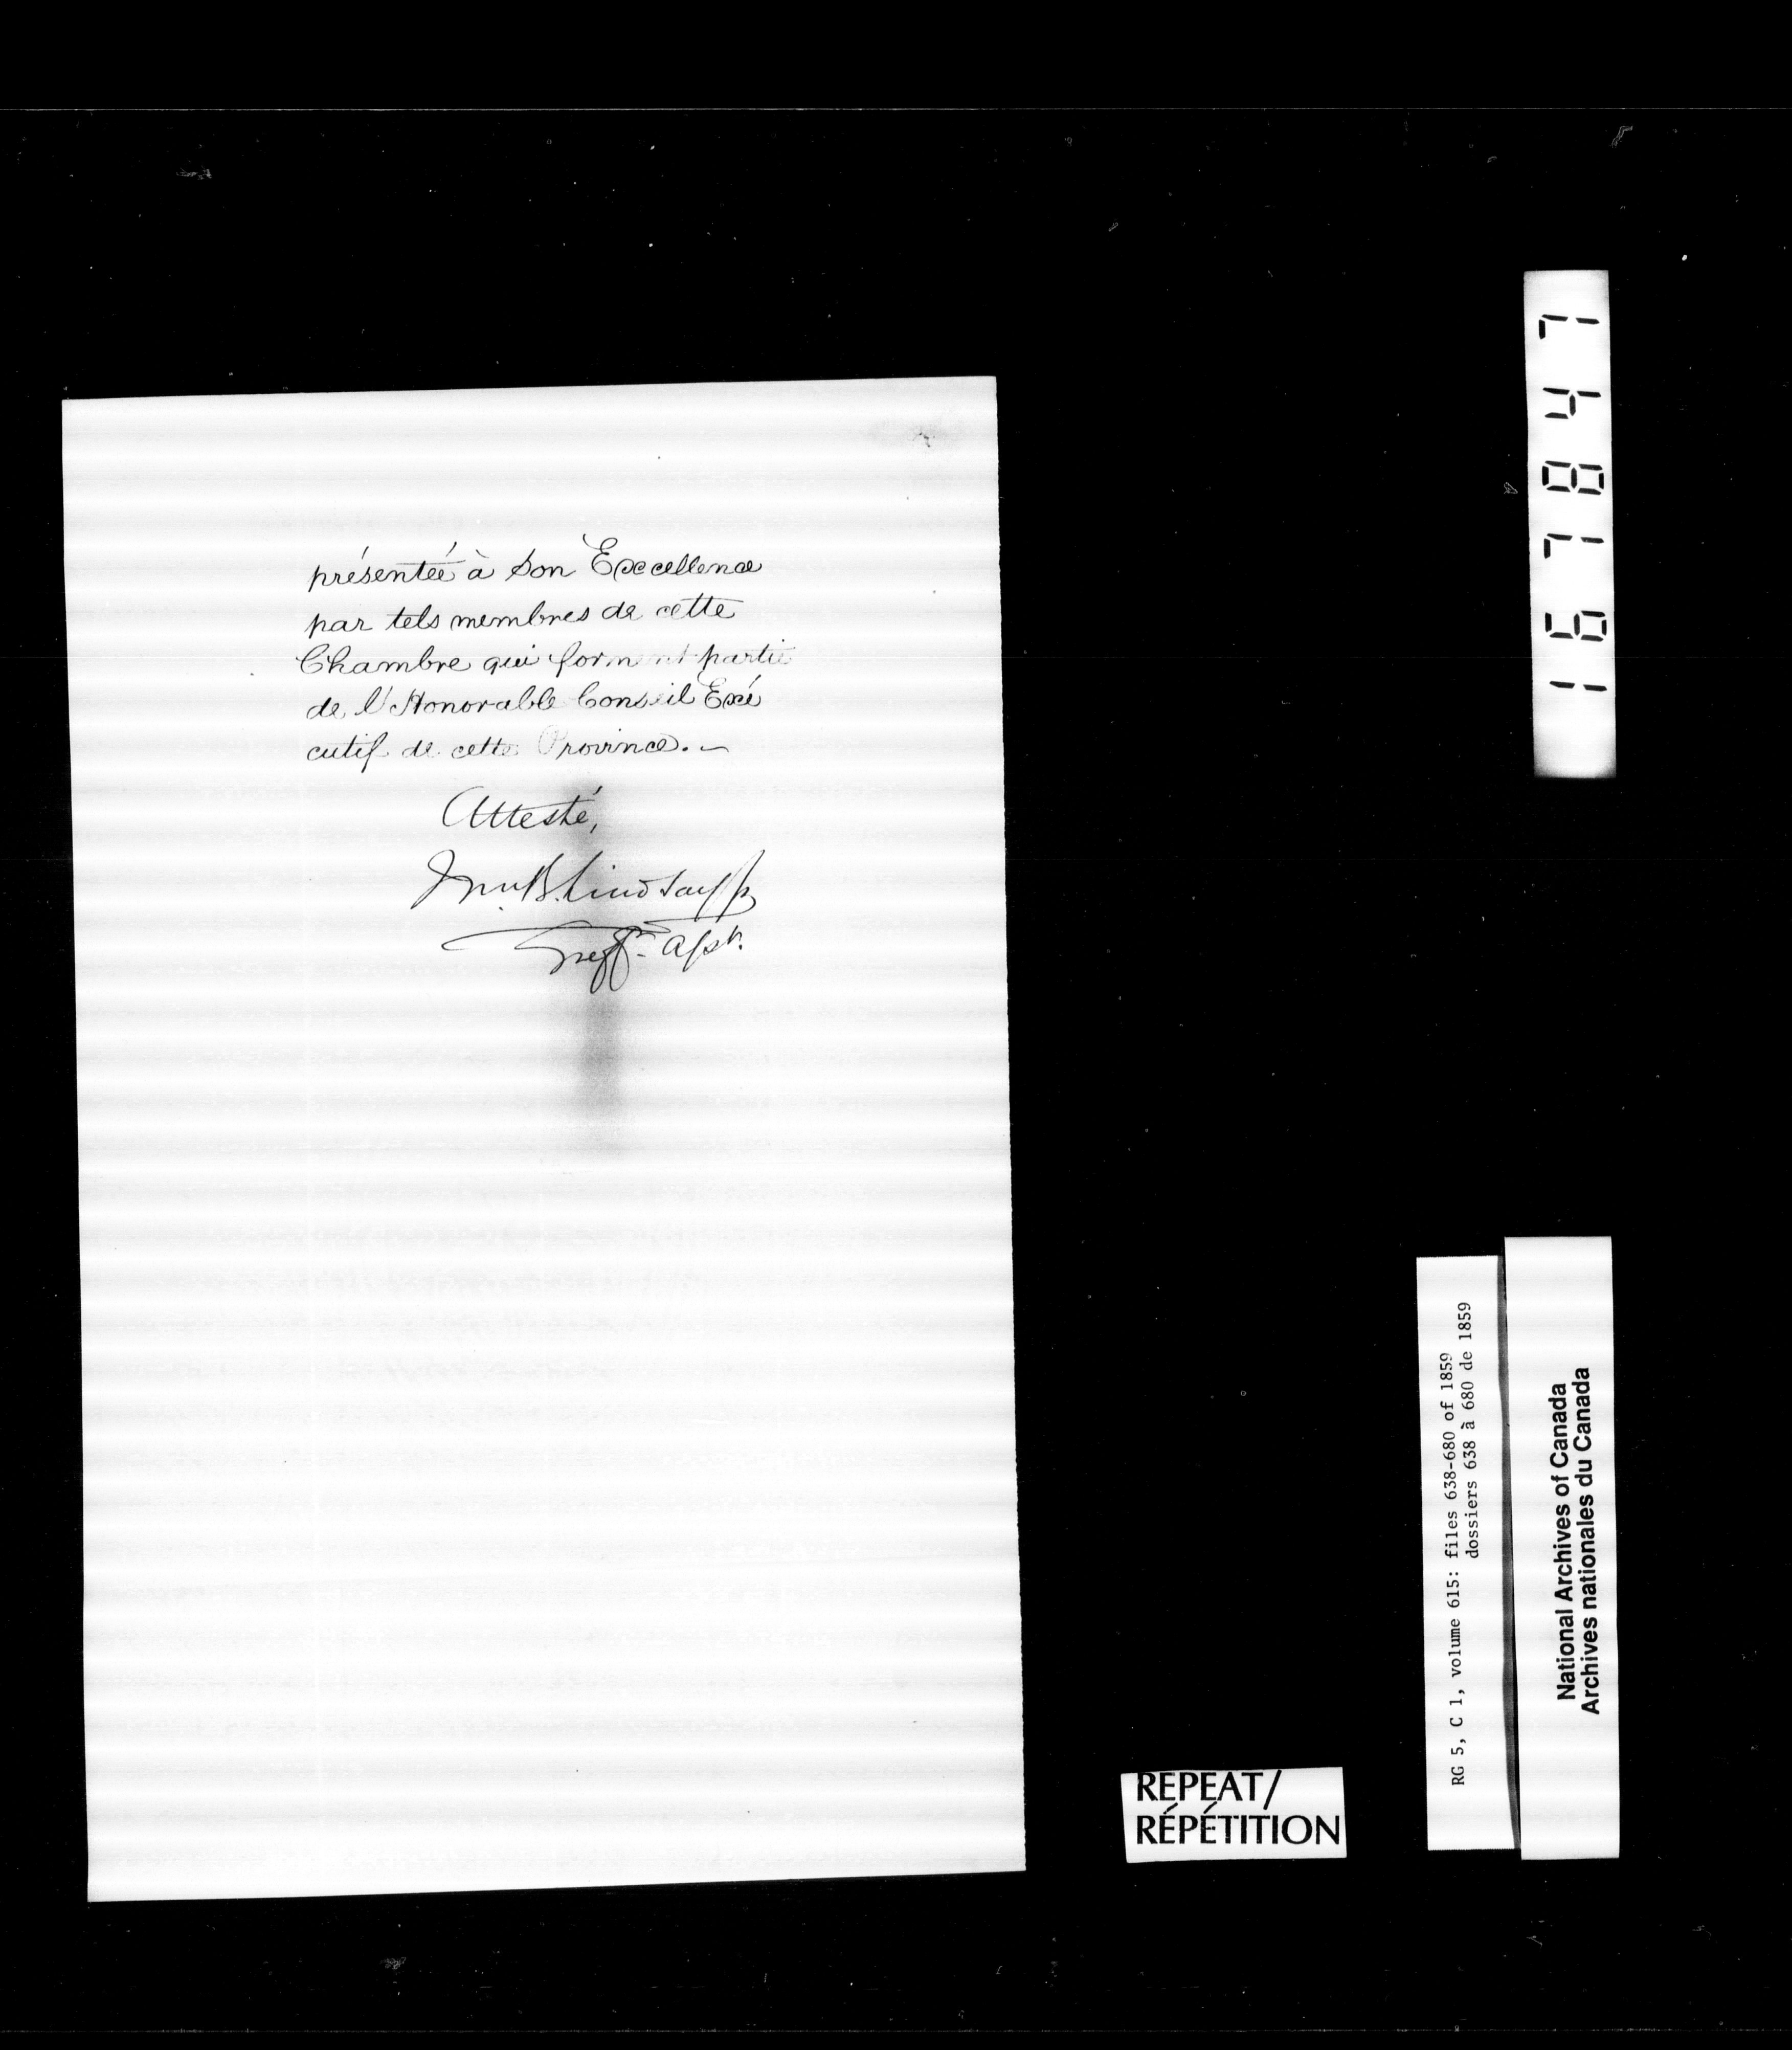 présentée à Son Excellence
par tels membres de cette
Chambre qui forment partie
de l'Honorable Conseil Exé
cutif de cette Province. —
Attesté,
Wm B. Lindsay Jr
Greffr. Asst.
167847
RG 5, C 1, volume 615: files 638-680 of 1859
dossiers 638 à 680 de 1859
National Archives of Canada
Archives nationales du Canada
REPEAT/
RÉPÉTITION